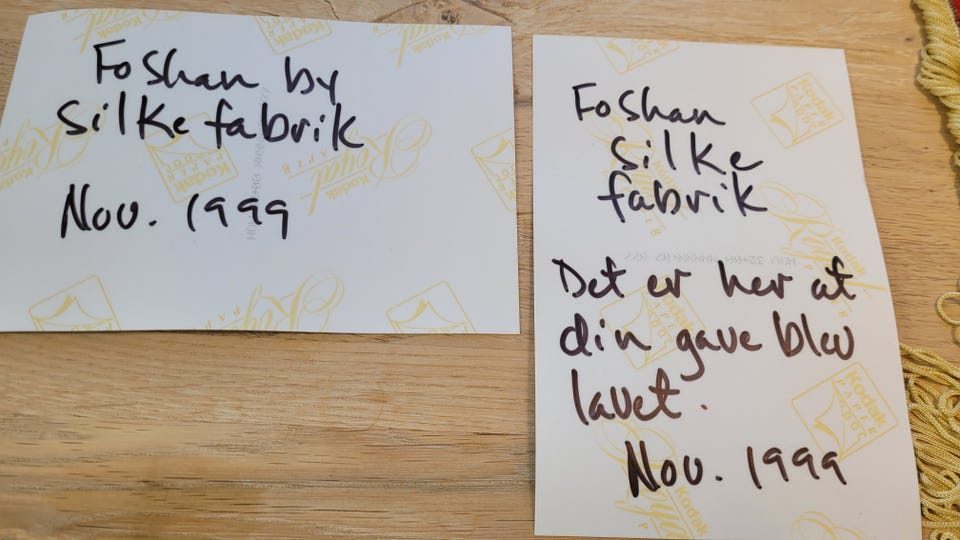 Foshan by
silke fabrik
Nov. 1999
Foshan
silke
fabrik
Det er her at
din gave blev
lavet.
Nov. 1999
Kodak
Royal
PAPER